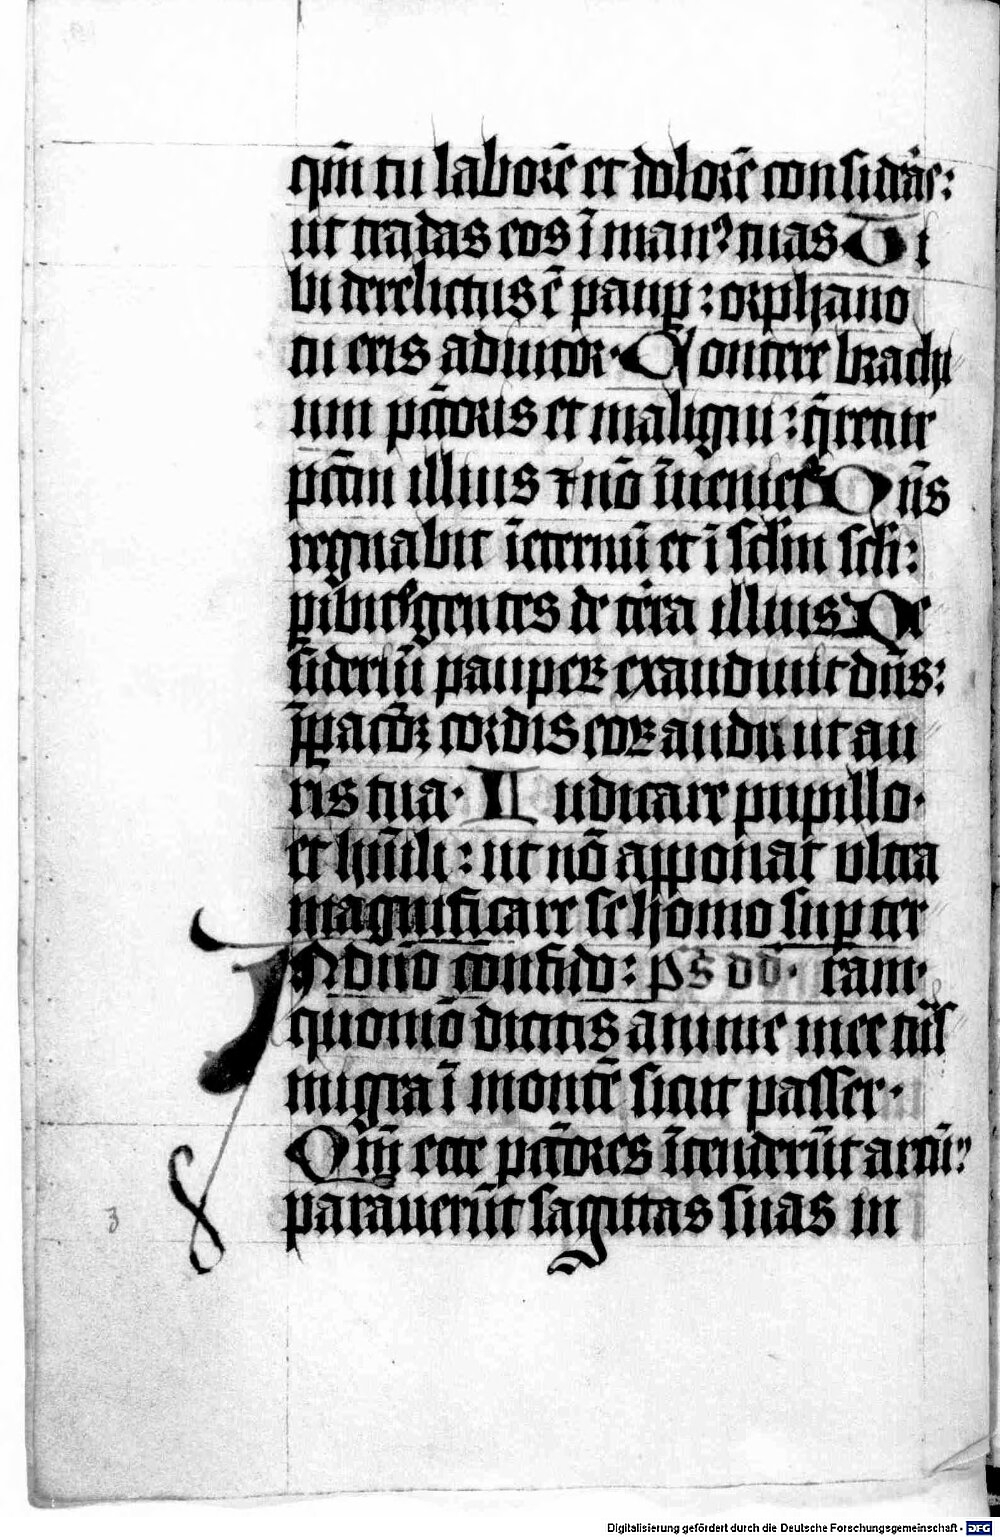 qm̄ tu laborē et dolorē considr̄as:
ut tradas eos ī man⁹ tuas Ti
bi derelictus ē paup̄: orphano
tu eris adiutor· Contere brachi
um pc̄coris et maligni: q̄retur
pc̄cm illius et nō īueniet᷑ Dn̄s
regnabit īeternū et ī sc̄lm sc̄li:
ꝑibitis gentes de tr̄ra illius De
sideriū pauperꝝ exaudiuit dn̄s:
p̄paratōꝫ cordis eoꝝ audiu ut au
ris tua· Iudicare pupillo·
et hūili: ut nō apponat ultra
magnificare se homo suꝑ ter
IN dn̄o confido: ps̄ dd̄· ram·
quomō dicitis anime mee tn̄s
migra ī montē sicut passer·
Qm̄ ecce pc̄cores ītenderūt arcū:
parauerūt sagittas suas in
3
Digitalisierung gefördert durch die Deutsche Forschungsgemeinschaft - DFG